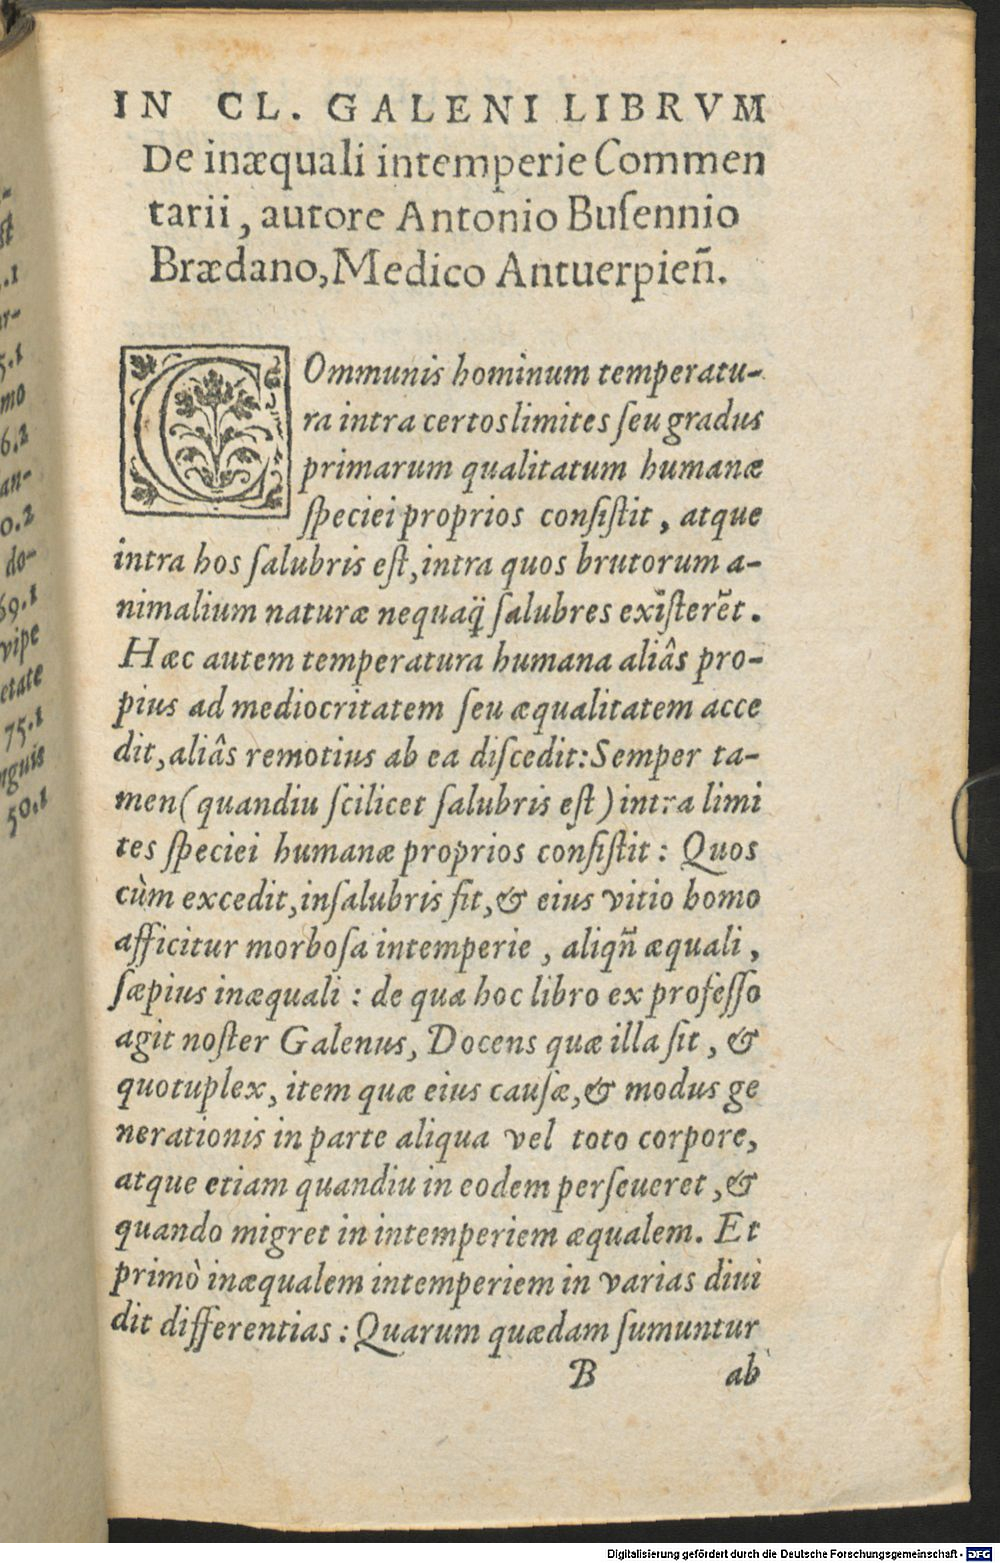 IN CL. GALENI LIBRVM
De inæquali intemperie Commen
tarii, autore Antonio Buſennio
Brædano, Medico Antuerpieñ.
COmmunis hominum temperatu-
ra intra certos limites ſeu gradus
primarum qualitatum humanæ
ſpeciei proprios conſiſtit, atque
intra hos ſalubris eſt, intra quos brutorum a-
nimalium naturæ nequaq̈ ſalubres exiſterẽt.
Hæc autem temperatura humana aliâs pro-
pius ad mediocritatem ſeu æqualitatem acce
dit, aliâs remotius ab ea diſcedit: Semper ta-
men (quandiu ſcilicet ſalubris eſt) intra limi
tes ſpeciei humanæ proprios conſiſtit: Quos
cùm excedit, inſalubris fit, & eius vitio homo
afficitur morboſa intemperie, aliqñ æquali,
ſæpius inæquali: de qua hoc libro ex profeſſo
agit noſter Galenus, Docens quæ illa ſit, &
quotuplex, item quæ eius cauſæ, & modus ge
nerationis in parte aliqua vel toto corpore,
atque etiam quandiu in eodem perſeueret, &
quando migret in intemperiem æqualem. Et
primò inæqualem intemperiem in varias diui
dit differentias: Quarum quædam ſumuntur
B ab
ſt
.1
ar-
5.1
mo
6.2
an-
0.2
do-
69.1
vipe
etate
75.1
nguis
50.1
Digitalisierung gefördert durch die Deutsche Forschungsgemeinschaft - DFG